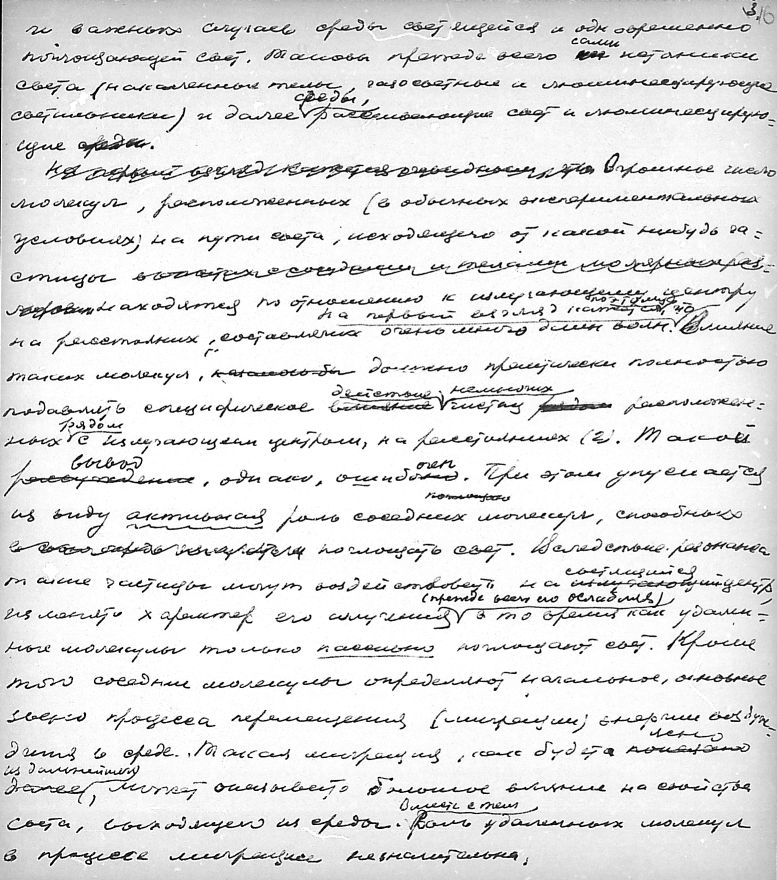 36
и важных случаев среды светящейся и одновременно
поглощающей свет. Таковы прежде всего сами источники
света (накаленные тела, газосветные и люминесцирующие
светильники) и далее среды, рассеивающие свет и люминесцирую-
щие среды.
На первый взгляд кажется очевидным, что Огромное число
молекул, расположенных (в обычных экспериментальных
условиях) на пути света, исходящего от какой нибудь ча-
стицы
находятся по отношению к излучающему центру
на расстояниях, составляющих очень много длин волн. На первый взгляд кажется поэтому, что Влияние
таких молекул, должно практически полностью
подавлять специфическое влияние действие немногих частиц рядом расположен-
ных рядом с излучающим центром, на расстояниях (2). Такой
рассуждение вывод, однако, ошибочен. При этом упускается
из виду активная роль соседних молекул, способных
поглощать свет. Вследствие резонанса
такие частицы могут воздействовать на излучающий светящийся центр,
изменять характер его излучения (прежде всего его ослабляя) в то время как удален-
ные молекулы только пассивно поглощают свет. Кроме
того соседние молекулы определяют начальное, основное
звено процесса перемещения (миграции) энергии возбуж-
дения в среде. Такая миграция, как будет показано ясно
далее из дальнейшего, может оказывать большое влияние на свойства
света, выходящего из среды. Вместе с тем Роль удаленных молекул
в процессе миграции незначительна.